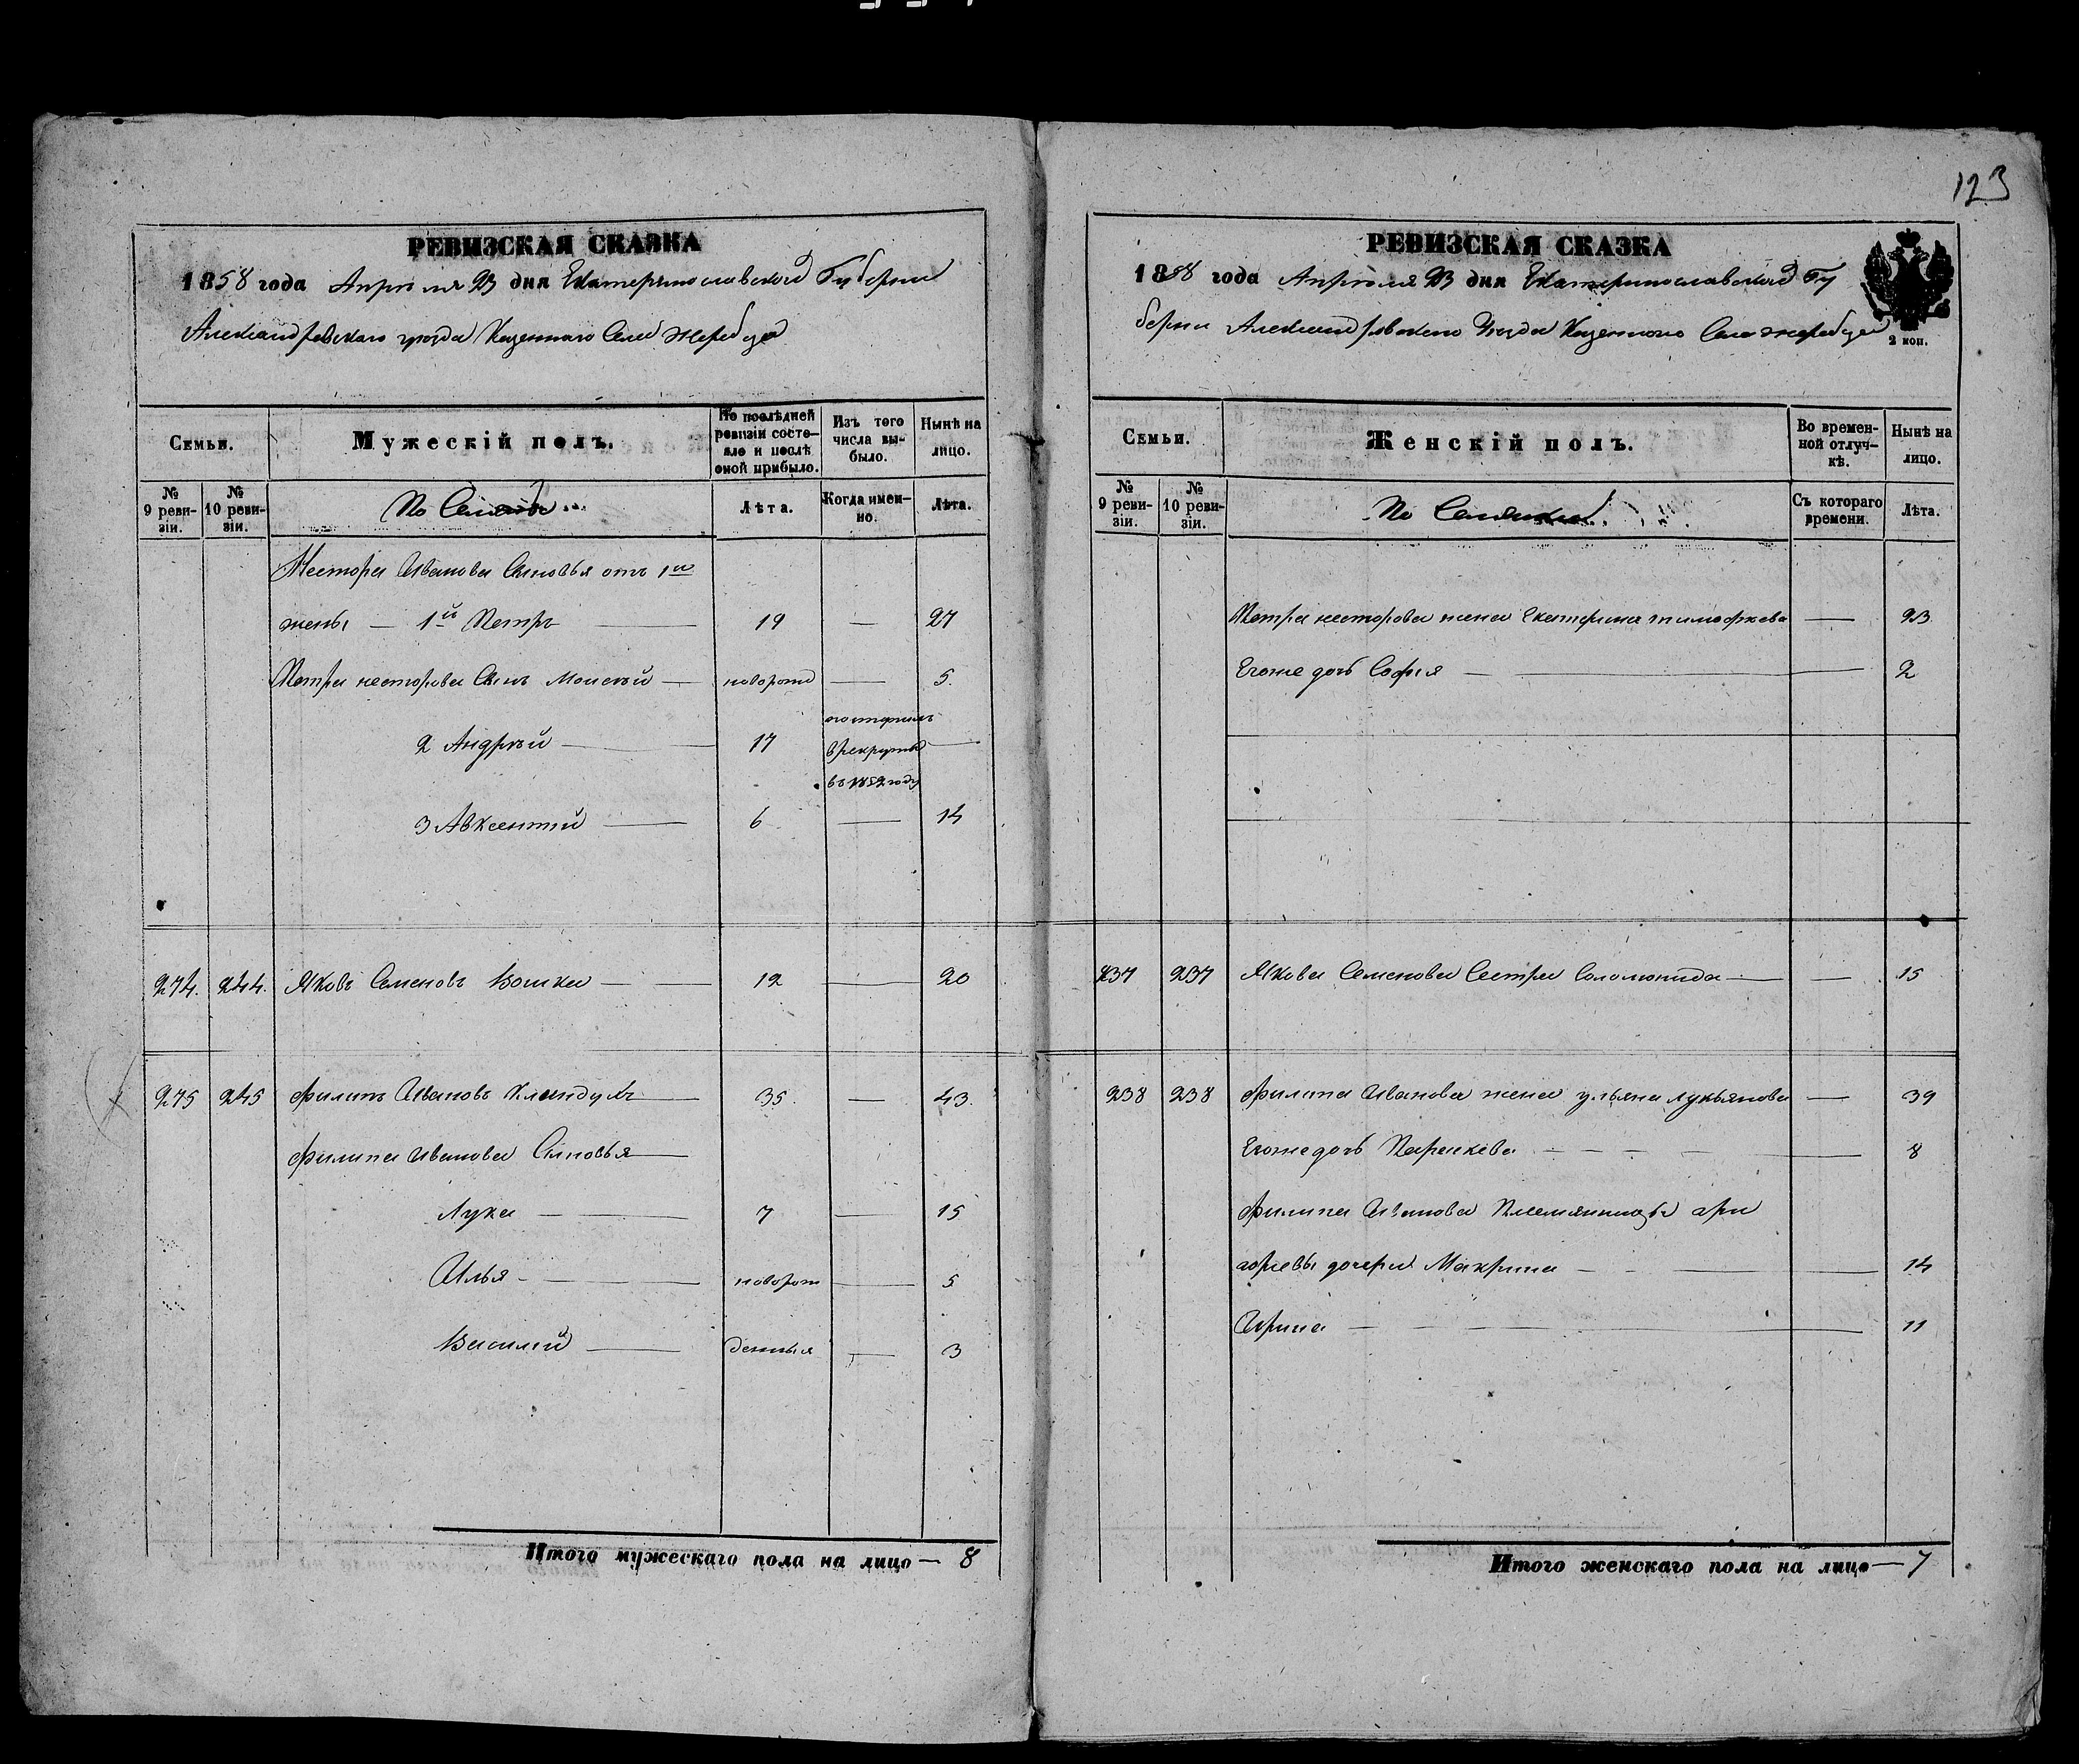 123
РЕВИЗСКАЯ СКАЗКА
1858 года Апреля 23 дня Екатеринославской Губернии
Александровскаго уезда Казеннаго Села Жеребца
Семьи.
Мужескій полъ.
По послѣдней ревизіи состо-
яло и послѣ оной прибыло.
Изъ того числа вы-
было.
Нынѣ на лицо.
№ 9 реви-
зіи.
№ 10 реви-
зіи.
Лѣта.
Когда имен-
но.
Лѣта.
Нестора Иванова Сыновья отъ 1й
жены — 1й Петръ — 19 — 27
Петра несторова Сынъ Моисей — новорож — 5.
2 Андрей — 17 поступилъ
в рекруты —
въ 1852 году
3 Авксентий — 6 — 14
274. 244. Яковъ Семеновъ Кошка — 12 — 20
275 245 Филипъ Ивановъ — 35. — 43.
Филипа Иванова Сыновья —
Лука — 7 — 15
Илья — новорож — 5
Василий — денныя — 3
Итого мужескаго пола на лицо — 8
РЕВИЗСКАЯ СКАЗКА
1858 года Апреля 23 дня Екатеринославской Гу
берни Александровскаго Уезда Казеннаго Села жеребца
2 коп.
Семьи.
Женскій полъ.
Во времен-
ной отлуч-
кѣ.
Нынѣ на лицо.
№ 9 реви-
зіи.
№ 10 реви-
зіи.
Съ котораго времени.
Лѣта.
Петра несторова жена Екатерина тимофеева — 23
Егоже дочь София — 2
237 237 Якова Семенова Сестра Соломонида — 15
238 238 Филипа Иванова жена ульяна лукьянова — 39
Егоже дочь Парскева — 8
Филипа Иванова Племянницы гри
горьевы дочери Макрина — 14
Ирина — 11
Итого женскаго пола на лицо — 7